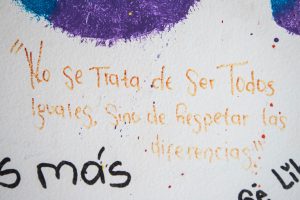 "No se trata de ser Todos
iguales, sino de Respetar las
diferencias"
s más
se Lib